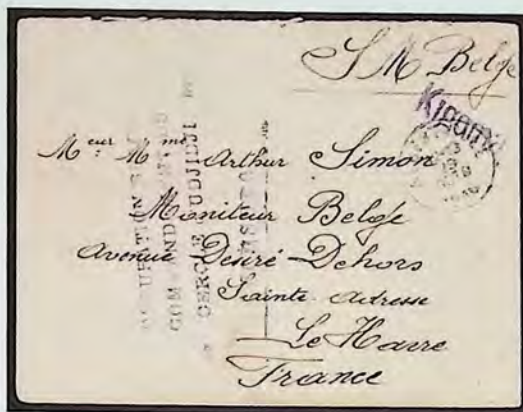 S M Belge
Kigoma
Mr et Mme Arthur Simon
Moniteur Belge
Avenue Desiré Dehors
Sainte Adresse
Le Havre
France
CERCLE D'UDJIDJI